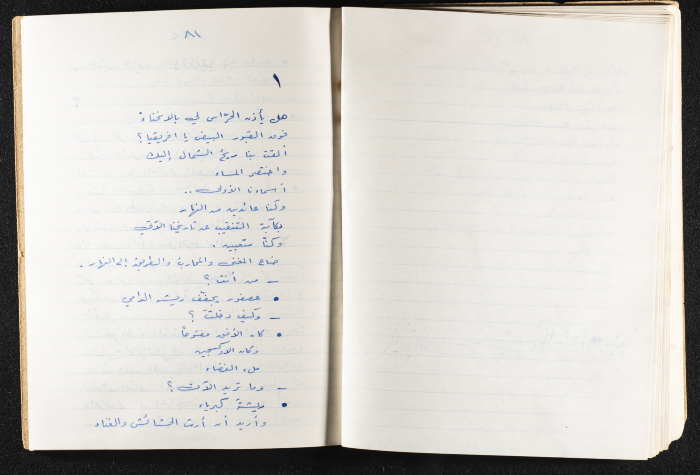 ٨١
١
هل يأذن الحرّاس لي بالانحناءْ
فوق القبور البيض يا افريقيا؟
ألقت بنا ريح الشمال إليك
واختصر المساء
أسماءنا الأولى ..
وكنا عائدين من النهار
بكآبة التنقيب عن تاريخنا الآتي
وكنّا متعبين .
ضاع المغنّي والمحارب والطريق إلى النهار .
ــ من أنت ؟
• عصفور يجفّف ريشه الدامي
ــ وكيف دخلتَ ؟
• كان الأفق مفتوحاً
وكان الاوكسجين
ملء الفضاء
ــ وما تريد الآن ؟
• ريشةَ كبرياء
وأريد أن أرث الحشائش والغناء